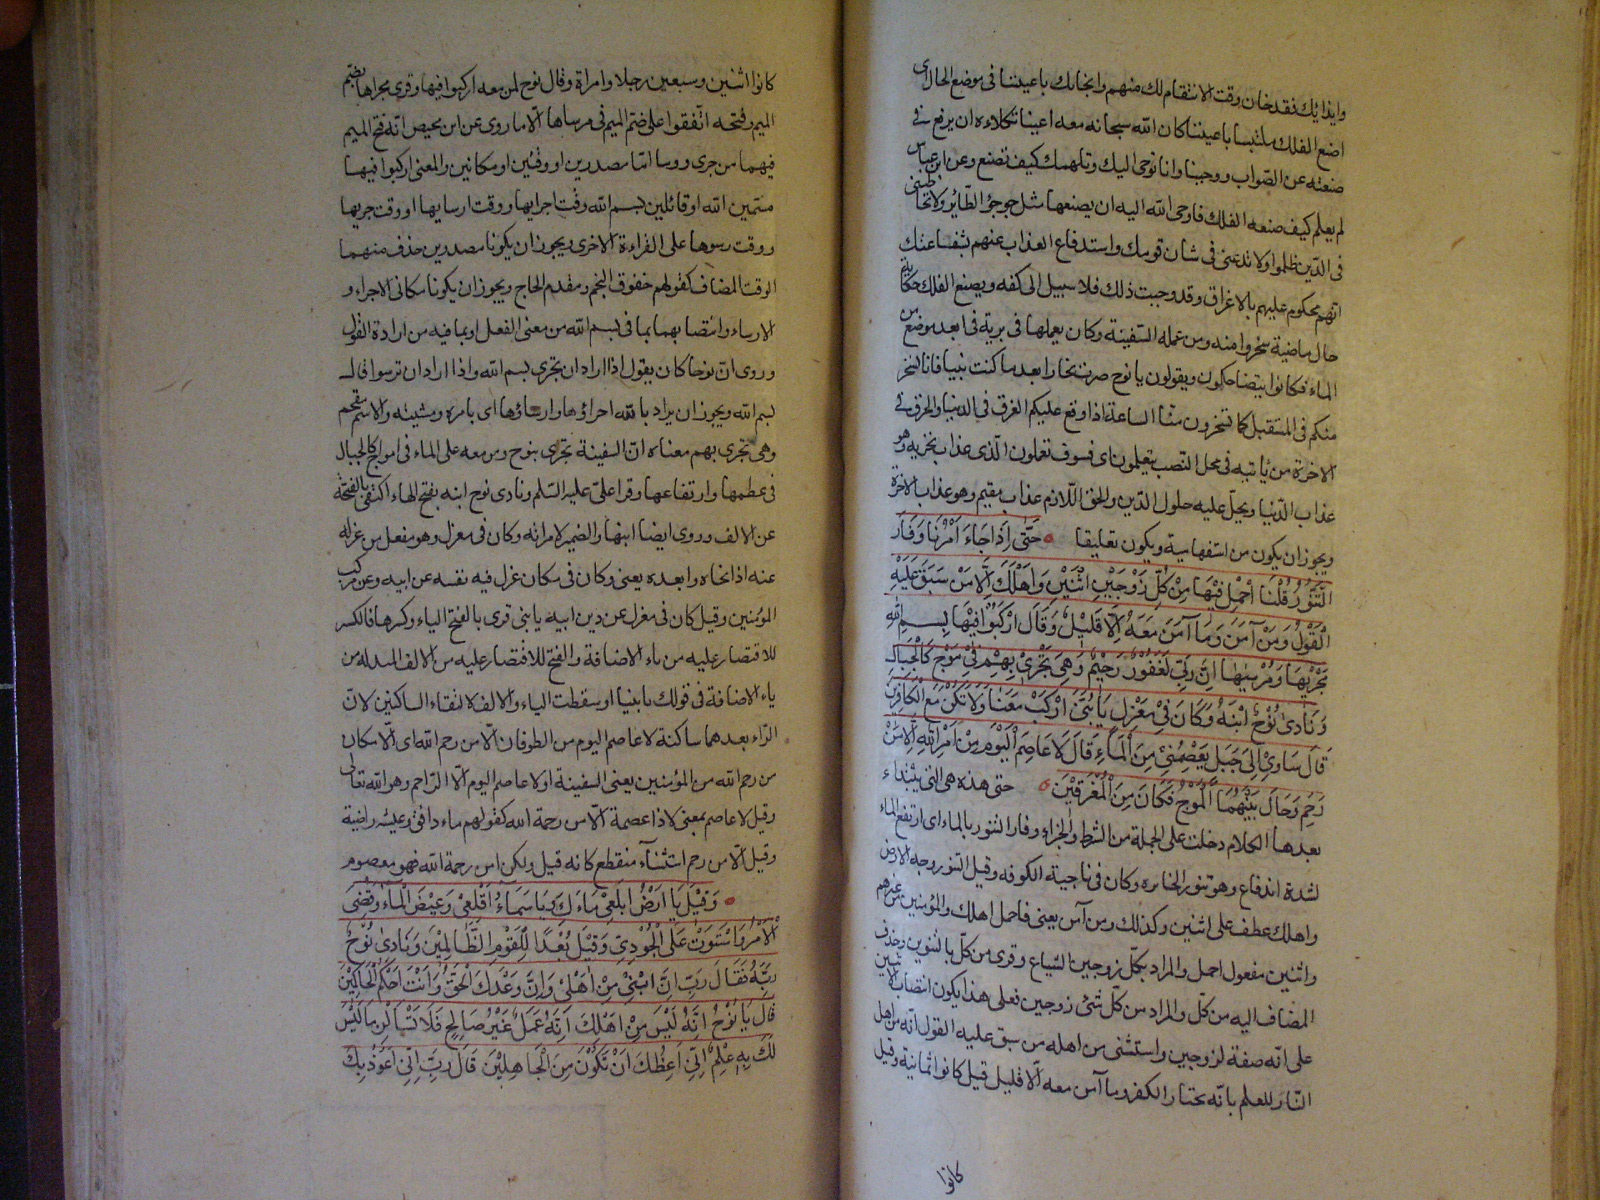 وايذائك فقد حان وقت الانتقام لك منهم وانجائك باعيننا في موضع الحال اى
اصنع الفلك ملتبسا باعيننا كان الله سبحانه معه اعينا تكلاءه ان يزيغ في
صنعته عن الصواب ووحينا وانا نوحى اليك ونلهمك كيف تصنع وعن ابن عباس
لم يعلم كيف صنعه الفلك فاوحى الله اليه ان يصنعها مثل جوجؤ الطائر ولا تخاطبنى
فى الذين ظلموا ولا تدعنى فى شان قومك واستدفاع العذاب عنهم بشفاعتك
انهم محكوم عليهم بالاغراق وقد وجبت ذلك فلا سبيل الى كفه ويصنع الفلك حكاية
حال ماضية سخروا منه ومن عمله السفينة وكان يعملها فى برية فى ابعد موضع من
الماء فكانوا يتضاحكون ويقولون يا نوح صرت نجارا بعد ما كنت نبيا فانا نسخر
منكم فى المستقبل كما تسخرون منا الساعة اذا وقع عليكم الغرق فى الدنيا والحرق فى
الاخرة من ياتيه فى محل النصب بتعلمون اى فسوف تعلمون الذى عذاب يخزيه وهو
عذاب الدنيا ويحل عليه حلول الدين والحق اللازم عذاب مقيم وهو عذاب الاخرة
ويجوز ان يكون من استفهامية ويكون تعليقا حَتّى اِذَا جَاءَ اَمْرُنَا وَفَارَ
التَّنُّورُ قُلْنَا احْمِلْ فِيْهَا مِنْ كُلِّ زَوْجَيْنِ اثْنَيْنِ وَاَهْلَكَ اِلَّا مَنْ سَبَقَ عَلَيْهِ
الْقَوْلُ وَمَنْ آمَنَ وَمَا آمَنَ مَعَهُ اِلَّا قَلِيْلٌ وَقَالَ ارْكَبُوْا فِيْهَا بِسْمِ اللهِ
مَجْرٰيهَا وَمُرْسٰيهَا اِنَّ رَبِّى لَغَفُوْرٌ رَحِيْمٌ وَهِىَ تَجْرِىْ بِهِمْ فِىْ مَوْجٍ كَالْجِبَالِ
وَنَادىٰ نُوْحٌ ابْنَهُ وَكَانَ فِىْ مَعْزِلٍ يَا بُنَىَّ ارْكَبْ مَعَنَا وَلَا تَكُنْ مَعَ الْكَافِرِيْنَ
قَالَ سَآوِىْ اِلىٰ جَبَلٍ يَعْصِمُنِىْ مِنَ الْمَاءِ قَالَ لَا عَاصِمَ الْيَوْمَ مِنْ اَمْرِ اللهِ اِلَّا مَنْ
رَحِمَ وَحَالَ بَيْنَهُمَا الْمَوْجُ فَكَانَ مِنَ الْمُغْرَقِيْنَ حتى هذه هى التى يبتداء
بعدها الكلام دخلت على الجملة من الشرط والجزاء وفار التنور بالماء اى ارتفع الماء
لشدة اندفاع وهو تنور الخابزه وكان فى ناحية الكوفه وقيل التنور وجه الارض
واهلك عطف على اثنين وكذلك ومن آمن يعنى فاحمل اهلك والمؤمنين من غيرهم
واثنين مفعول احمل والمراد بكل زوجين الشياع وقرى من كل بالتنوين وحذف
المضاف اليه من كل والمراد من كل شئ زوجين فعلى هذا يكون انتصاب اثنين
على انه صفة لزوجين واستثنى من اهله من سبق عليه القول انه من اهل
النار للعلم بانه يختار الكفر وما آمن معه الا قليل قيل كانوا ثمانية وقيل
كانوا
كانوا اثنين وسبعين رجلا وامراة وقال نوح لمن معه اركبوا فيها وقرى مجراها بضم
الميم وفتحه اتفقوا على ضم الميم فى مرساها الا ما روى عن ابن محيص انه فتح الميم
فيهما من جرى ورسا اما مصدرين او وقتين او مكانين والمعنى اركبوا فيها
مسمين الله او قائلين بسم الله وقت اجرايها ووقت ارسايها او وقت جريها
ووقت رسوها على القراءة الاخرى ويجوز ان يكونا مصدرين حذف منهما
الوقت المضاف كقولهم خفوق النجم ومقدم الحاج ويجوز ان يكونا مكانى الاجراء و
الارساء وانتصابهما بما فى بسم الله من معنى الفعل او بما فيه من ارادة القول
وروى ان نوحا كان يقول اذا اراد ان تجرى بسم الله واذا اراد ان ترسوا قال
بسم الله ويجوز ان يراد بالله اجراؤها وارساؤها اى بامره ومشيته والاسم مقحم
وهى تجرى بهم معناه ان السفينة تجرى بنوح ومن معه على الماء فى امواج كالجبال
فى عظمها وارتفاعها وقرا على عليه السلم ونادى نوح ابنه بفتح الهاء اكتفى بالفتحة
عن الالف وروى ايضا ابنها والضمير لامراته وكان فى معزل وهو مفعل من عزله
عنه اذا نحاه وابعده يعنى وكان فى مكان عزل فيه نفسه عن ابيه وعن مركب
المؤمنين وقيل كان فى معزل عن دين ابيه يا بنى قرى بالفتح الياء وكسرها فالكسر
للاقتصار عليه من ياء الاضافة والفتح للاقتصار عليه من الالف المبدلة من
ياء الاضافة فى قولك يا بنيا او سقطت الياء والالف لالتقاء الساكنين لان
الراء بعدهما ساكنة لا عاصم اليوم من الطوفان الا من رحم الله اى الا مكان
من رحم الله من المؤمنين يعنى السفينة او لا عاصم اليوم الا الراحم وهو الله تعالى
وقيل لا عاصم بمعنى لا ذا عصمة الا من رحمة الله كقولهم ماء دافق وعيشه راضية
وقيل الا من رحم استثنآء منقطع كانه قيل ولكن من رحمة الله فهو معصوم
وَقِيْلَ يَا اَرْضُ ابْلَعِىْ مَاءَكِ وَيَا سَمَاءُ اَقْلِعِىْ وَغِيْضَ الْمَاءُ وَقُضِىَ
الْاَمْرُ وَاسْتَوَتْ عَلَى الْجُوْدِىِّ وَقِيْلَ بُعْدًا لِلْقَوْمِ الظَّالِمِيْنَ وَنَادىٰ نُوْحٌ
رَبَّهُ فَقَالَ رَبِّ اِنَّ ابْنِىْ مِنْ اَهْلِىْ وَاِنَّ وَعْدَكَ الْحَقُّ وَاَنْتَ اَحْكَمُ الْحَاكِمِيْنَ
قَالَ يَا نُوْحُ اِنَّهُ لَيْسَ مِنْ اَهْلِكَ اِنَّهُ عَمَلٌ غَيْرُ صَالِحٍ فَلَا تَسْئَالْنِ مَا لَيْسَ
لَكَ بِهِ عِلْمٌ اِنِّى اَعِظُكَ اَنْ تَكُوْنَ مِنَ الْجَاهِلِيْنَ قَالَ رَبِّ اِنِّى اَعُوْذُ بِكَ